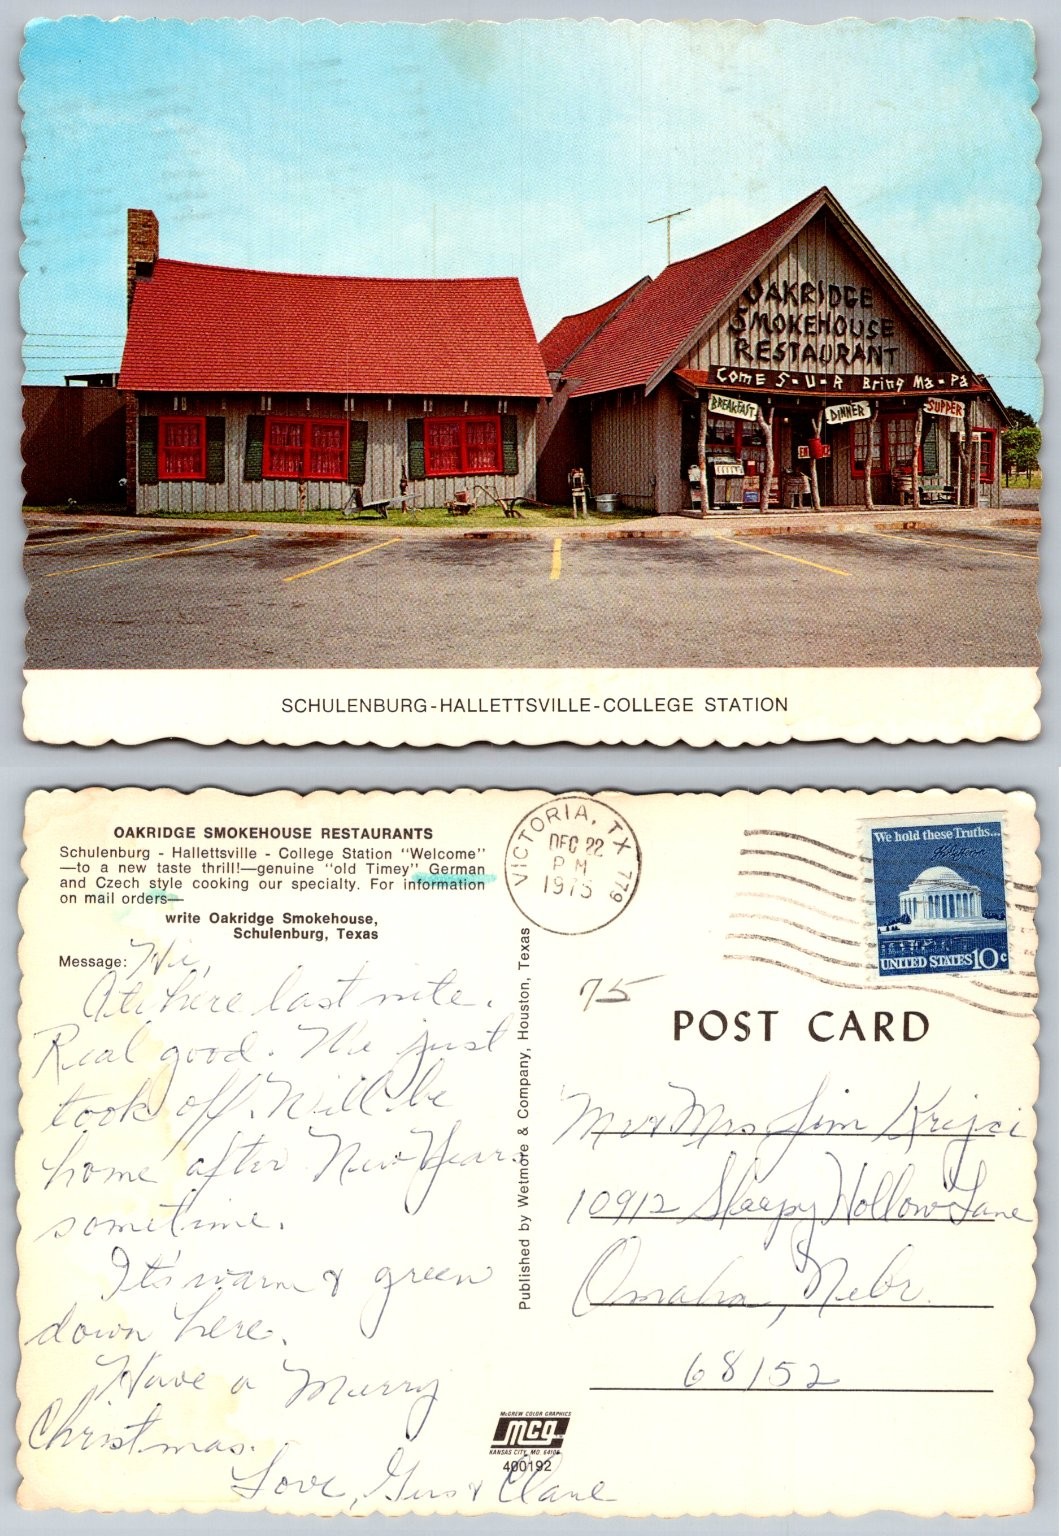 OAKRIDGE
SMOKEHOUSE
RESTAURANT
Come S-U-R Bring Ma-Pa
BREAKFAST
DINNER
SUPPER
SCHULENBURG-HALLETTSVILLE-COLLEGE STATION
OAKRIDGE SMOKEHOUSE RESTAURANTS
Schulenburg - Hallettsville - College Station "Welcome"
—to a new taste thrill!—genuine "old Timey" German
and Czech style cooking our specialty. For information
on mail orders—
write Oakridge Smokehouse,
Schulenburg, Texas
Message: Hi,
Ate here last nite.
Real good. We just
took off. Will be
home after New Years
sometime.
It's warm & green
down here.
Have a Merry
Christmas.
Love, Gus & Clare
Published by Wetmore & Company, Houston, Texas
VICTORIA, TX 779
DEC 22
PM
1975
We hold these Truths...
UNITED STATES 10c
75
POST CARD
Mr & Mrs Jim Krejci
10912 Sleepy Hollow Lane
Omaha, Nebr.
68152
McGREW COLOR GRAPHICS
mcg
KANSAS CITY, MO 64108
400192